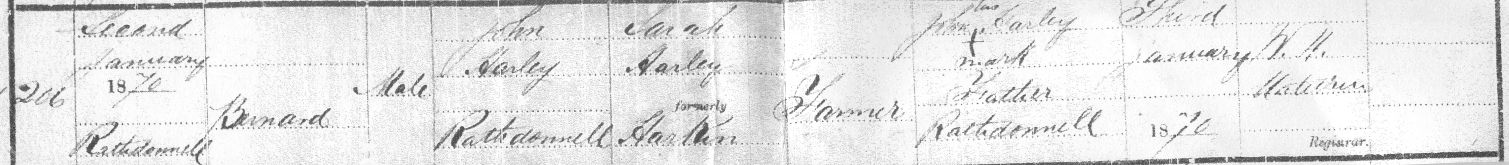 206
Second
January
1870
Rathdonnell
Bernard
Male
John
Harley
Rathdonnell
Sarah
Harley
formerly
Harkin
Farmer
John his Harley
X
mark
Father
Rathdonnell
Third
January
1870
Registrar.